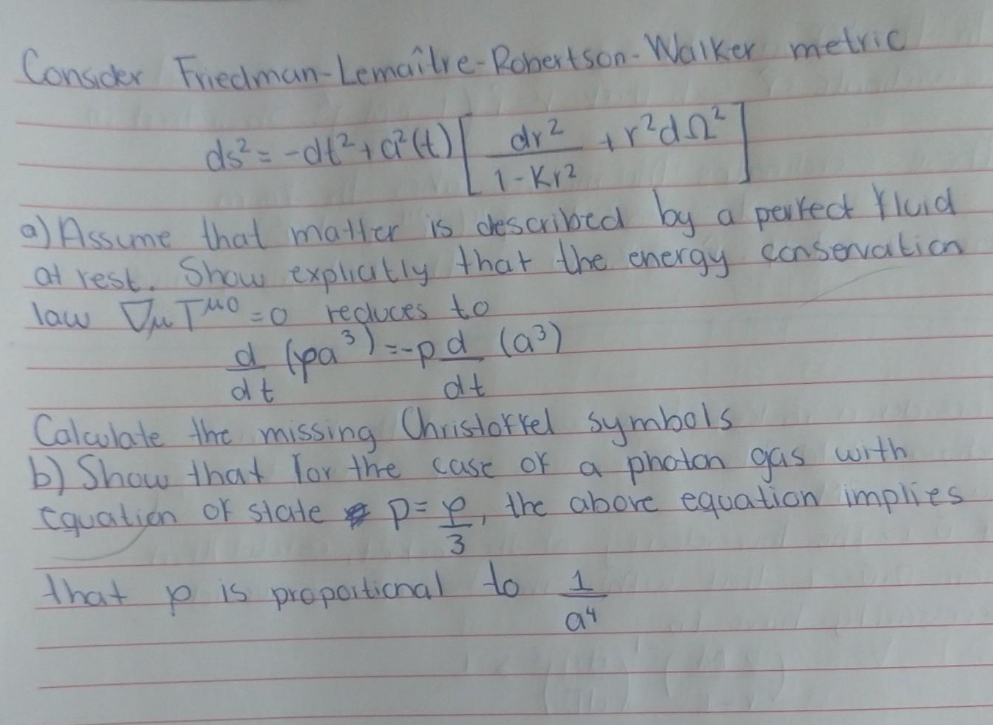 Consider Friedman-Lemaître-Robertson-Walker metric
ds² = -dt² + a²(t) [ dr²/(1-Kr²) + r²dΩ² ]
a) Assume that matter is described by a perfect fluid
at rest. Show explicitly that the energy conservation
law ∇μ T^μ0 = 0 reduces to
d/dt (ρa³) = -p d/dt (a³)
Calculate the missing Christoffel symbols
b) Show that for the case of a photon gas with
equation of state p = ρ/3, the above equation implies
that ρ is proportional to 1/a⁴